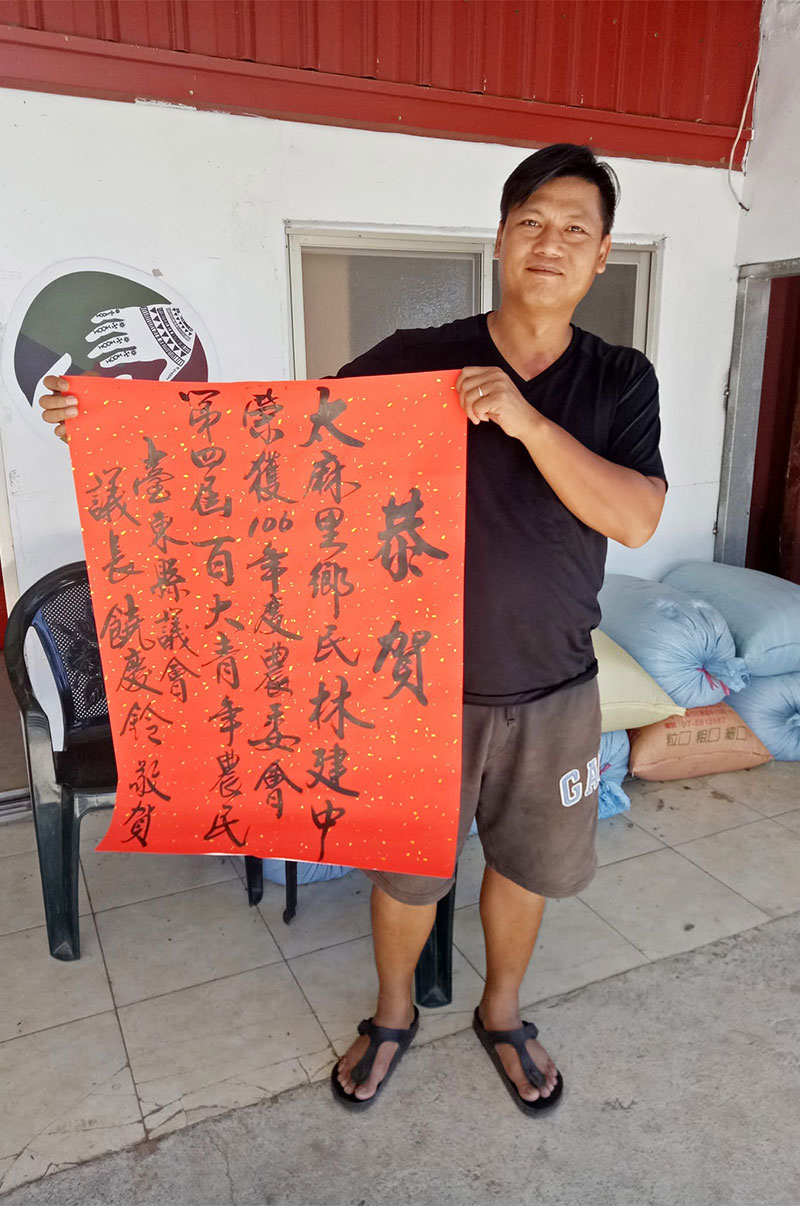 恭賀
太麻里鄉民林建中
榮獲106年度農委會
第四屆百大青年農民
臺東縣議會
議長饒慶鈴敬賀
GA
07-6813567
粒□ 粗□ 細□